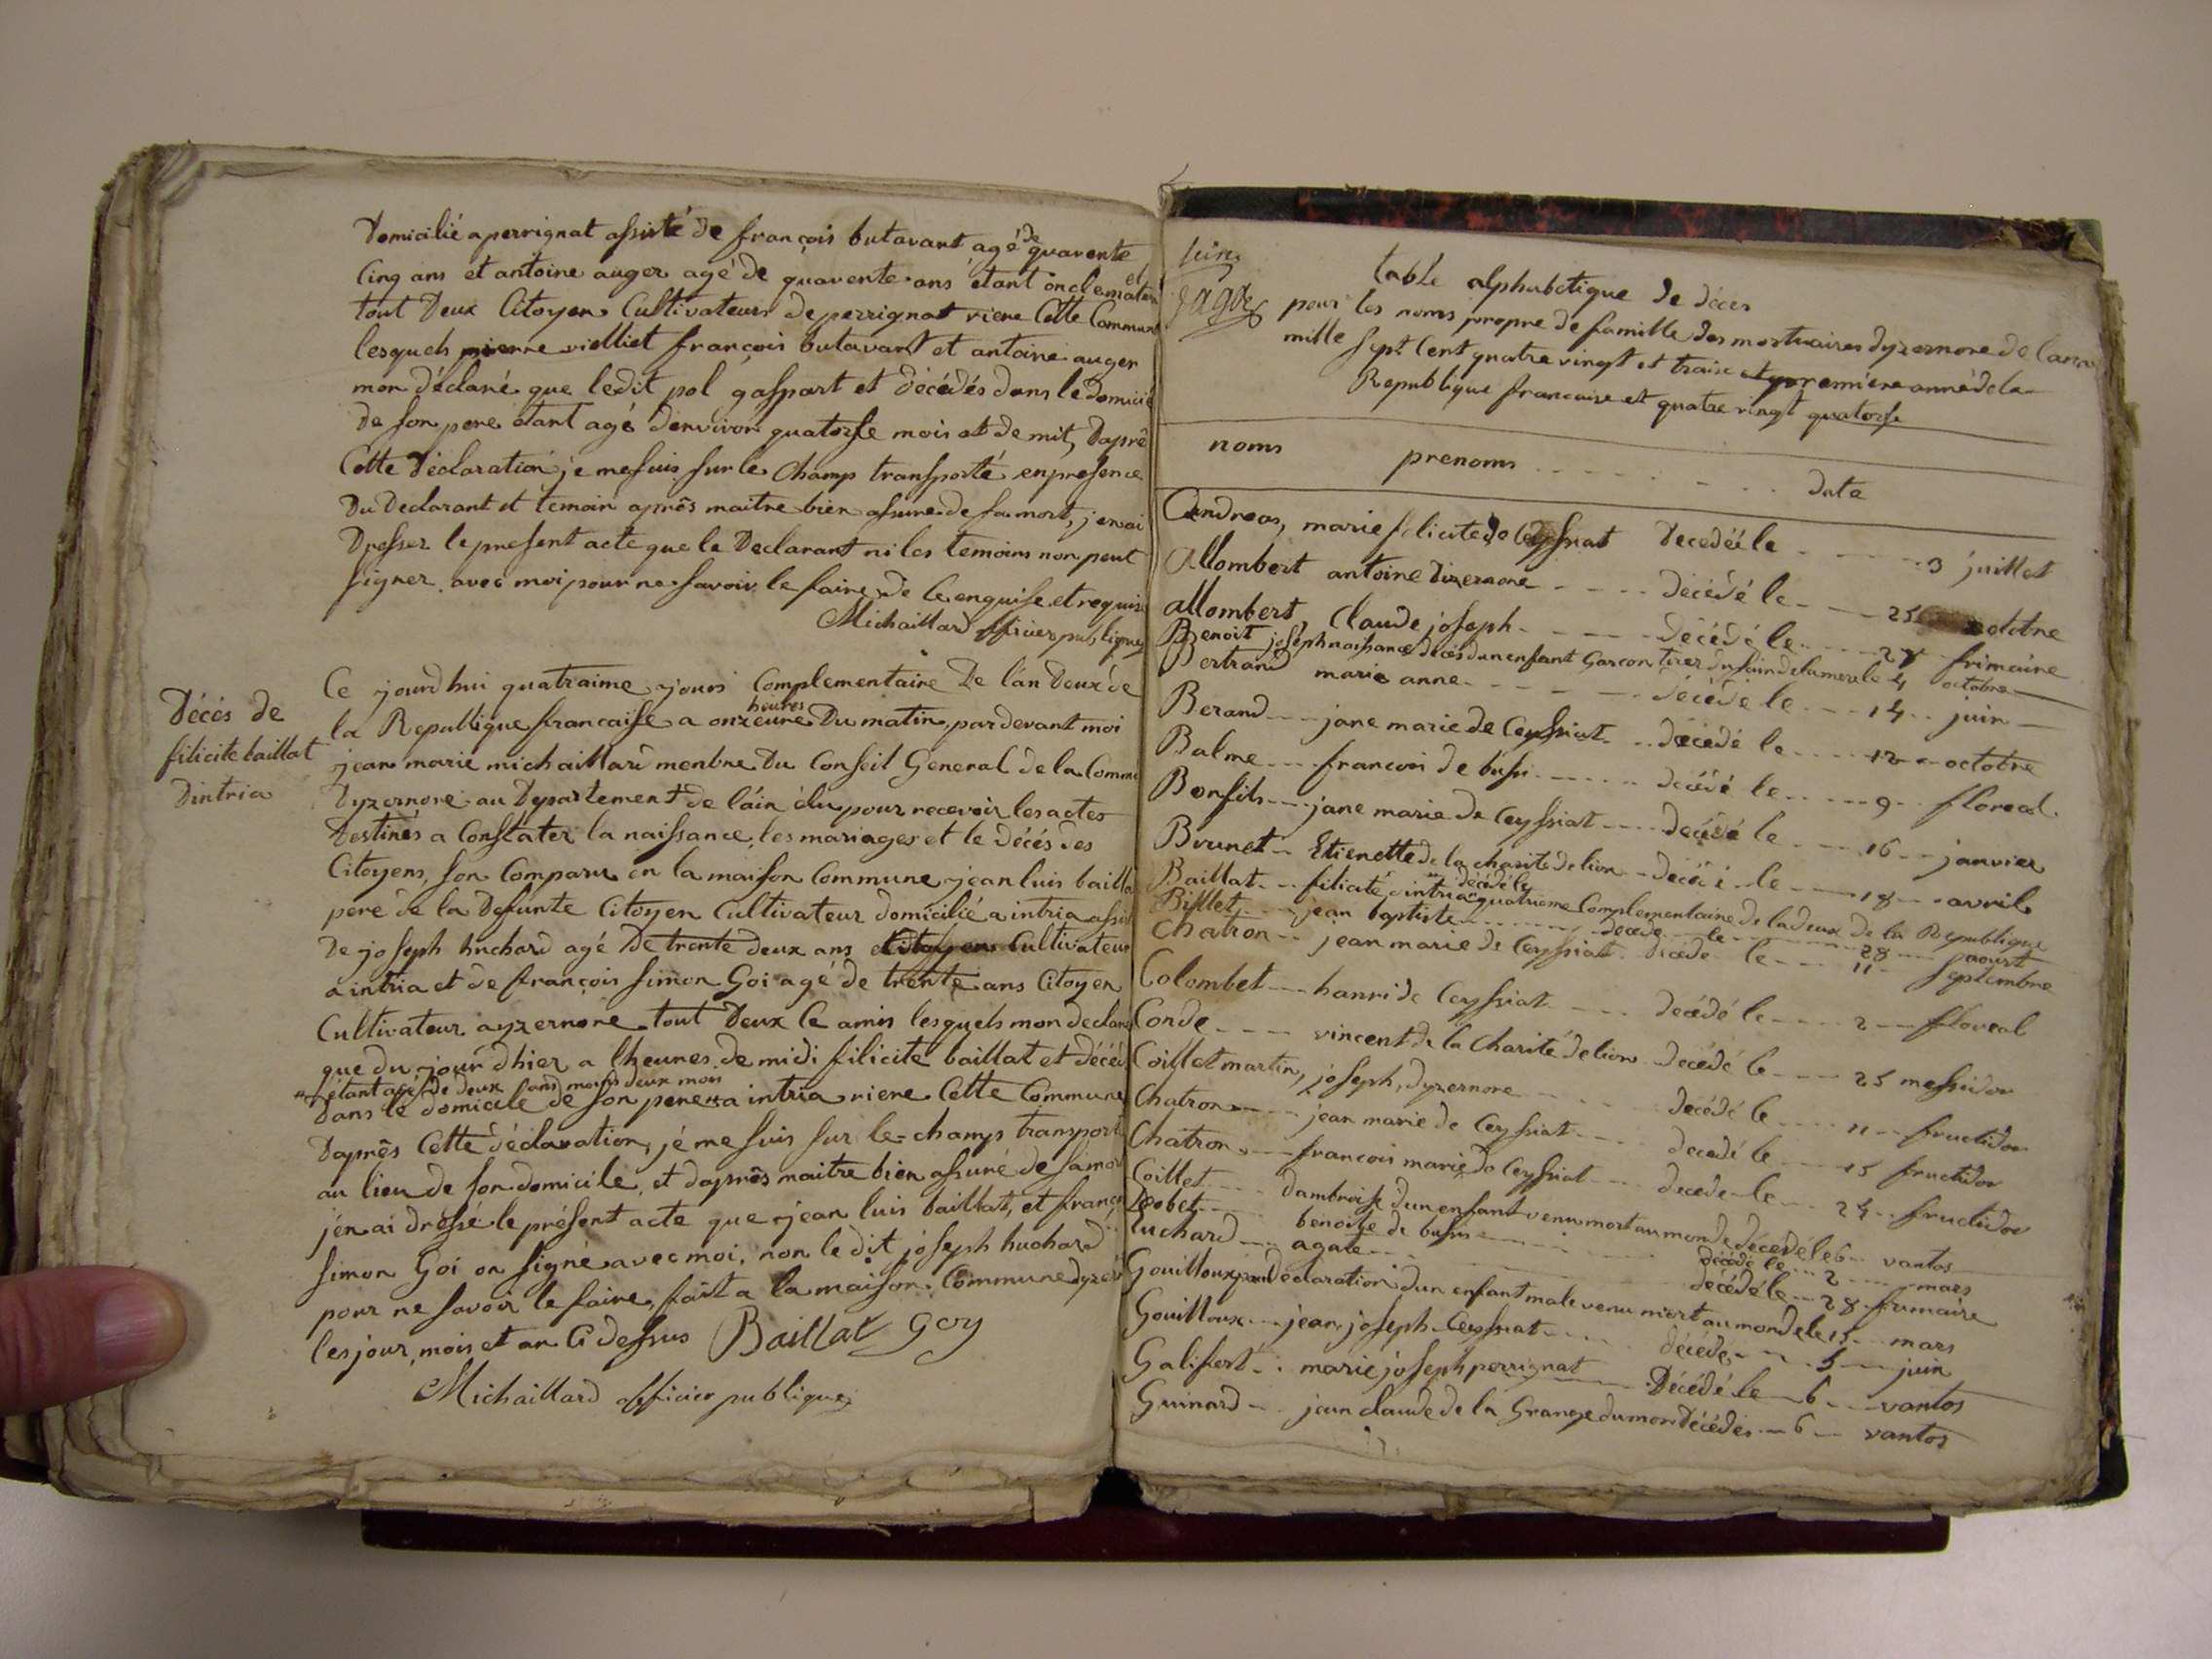 Domicilié a perrignat assisté de françois butavant agé de quarente
Cinq ans et antoine auger agé de quarente ans étant oncle maternel
tout Deux Citoyen Cultivateurs de perrignat riere Cette Commune
lesquels pierre vielliet françois butavant et antoine auger
mon déclaré que ledit pol gaspart et décédés dans le domicil
de son pere étant agé denviron quatorse mois et demit, Daprê
Cette Déclaration je me suis sur le Champ transporté en presence
Du Declarant et temoin après maitre bien assure de sa mort, j'en ai
Dresser le present acte que le Declarant ni les temoins non peut
signer avec moi pour ne savoir le faire de ce enquise et requis
Michaillard officier publique
Décès de
filicite baillat
Dintria
Ce jourd'hui quatraime jours Complementaire De l'an Deux de
la Republique francaise a onze heures Du matin, pardevant moi
jean marie michaillard menbre Du Conseil General de la Commu
Dyzernore au Departement de láin élu pour recevoir les actes
Destinés a Constater la naissance, les mariages et le décés des
Citoyens, son Comparu en la maison Commune jean luis bailla
pere de la Defunte Citoyen Cultivateur domicilié a intria assis
de joseph huchard agé De trente deux ans Cultivateur
a intria et de françois simon Goi agé de trente ans Citoyen
Cultivateur ayzernore tout Deux Ce amis lesquels mon declar
que du jour d'hier a lheures de midi filicite baillat et décéd
étant agés de deux ans moins deux mois
Dans le domicile de son pere a intria riere Cette Commune
Daprês Cette déclaration, jé me suis sur le champs transport
au lieu de son domicile, et daprês maitre bien assuré de sa mor
jén ai dressé le présent acte que jean luis baillat, et franço
simon Goi on signé avec moi, non le dit joseph huchard
pour ne savoir le faire, fait a la maison Commune dyzer
les jour, mois et an Ci dessus Baillat Goy
Michaillard officier publique
table alphabetique de décès
pour les noms propre de famille des mortuaires dyzernore de lannee
mille sept Cent quatre vingt et traise et premiere anné de la
Republique francaise et quatre vingt quatorse
noms prenoms date
Andreas, marie felicite de Ceyssiat Decedéé le 3 juillet
Allombert antoine Dizernore décédé le 25 octobre
allombert, Claude joseph décédé le 27 frimaire
Benoit joseph naissance décès dun enfant Garcon tirer du sain de la mere le 4 octobre
Bertrand marie anne décédé le 14 juin
Berand jane marie de Ceyssiat décédé le 12 octobre
Balme francois de bussi décédé le 9 floreal
Bonfils jane marie de Ceyssiat décédé le 16 janvier
Brunet Etienette de la charité de lion décédé le 18 avril
Baillat filicité dintria décédé le quatrieme Complementaire de lan deux de la Republique
Billet jean baptiste décédé le 28 aoust
Chatron jean marie de Ceyssiat décédé le 11 septembre
Colombet hanri de Ceyssiat décédé le 2 floreal
Conde vincent de la Charité de lion décédé le 25 messidor
Coillet martin, joseph, dyzernore décédé le 11 fructidor
Chatron jean marie de Ceyssiat décédé le 15 fructidor
Chatron francois marie de Ceyssiat décédé le 24 fructidor
Coillet dambroise dun enfant venu mort au monde décédé le 6 vantos
benoite de bussi décédé le 2 mars
luchard agate décédé le 28 frimaire
Gouilloux déclaration dun enfant male venu mort au monde le 15 mars
Gouilloux jean joseph Ceyssiat décédé 5 juin
Galifert marie joseph perrignat Décédé le 6 vantos
Guinard jean claude de la Grange dumon décédés 6 vantos